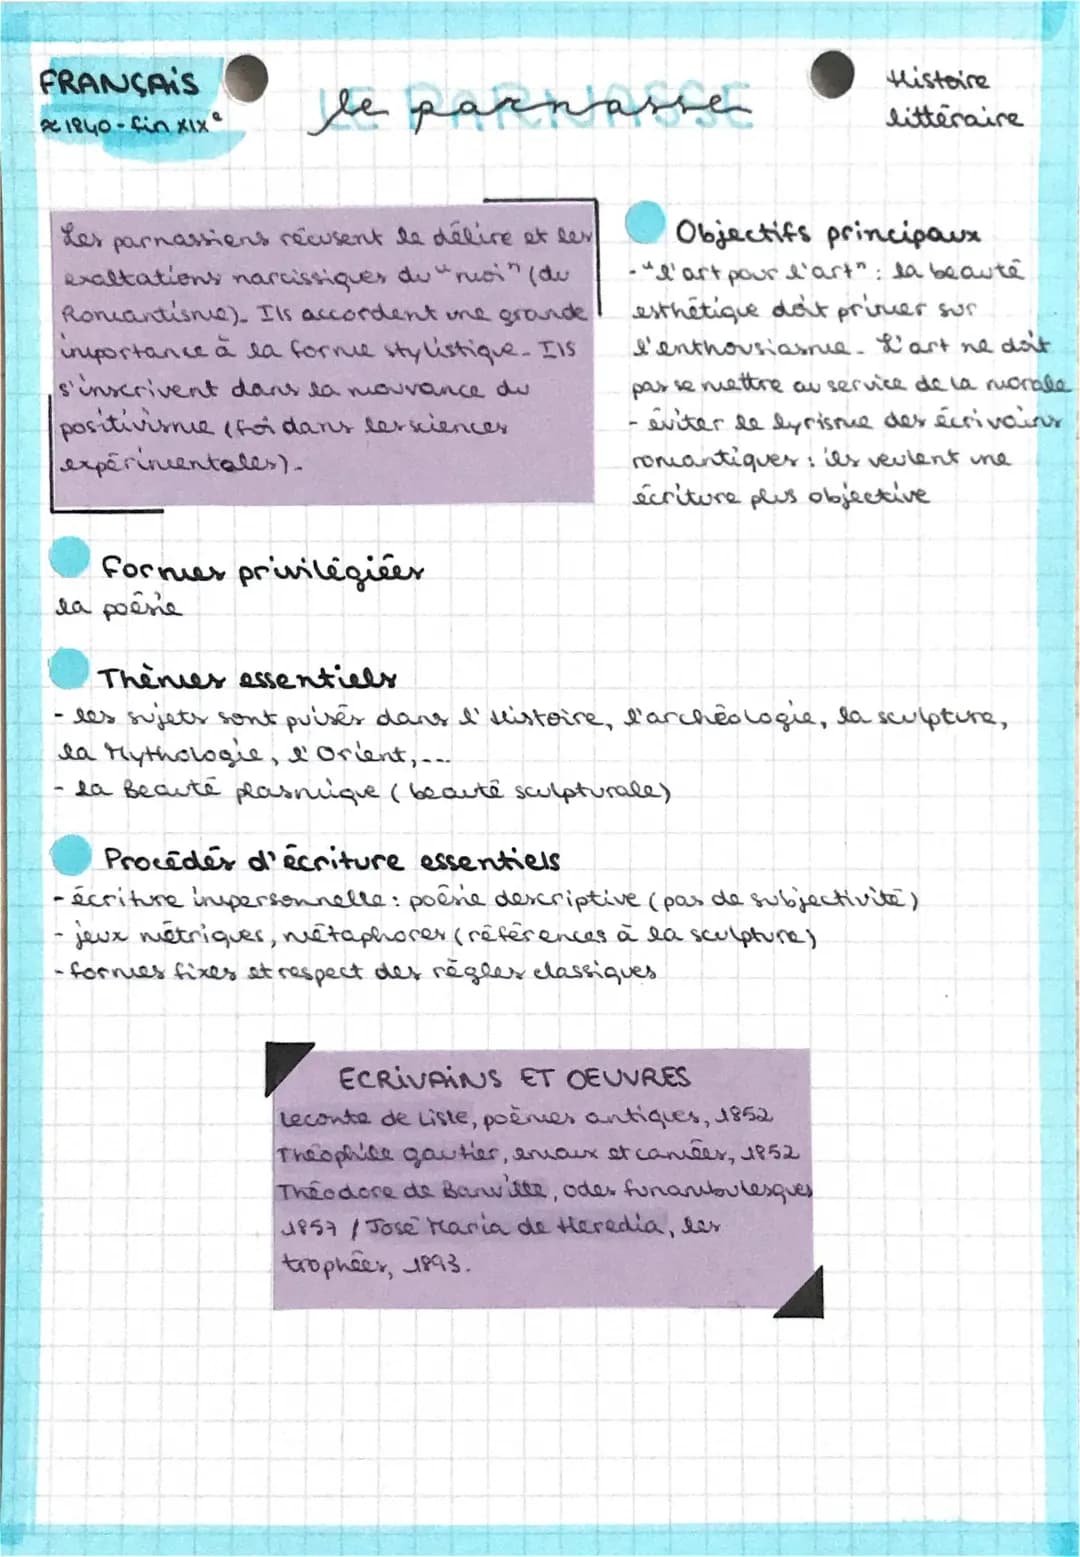 FRANÇAIS
≈ 1840 - fin XIXe
LE PARNASSE
le parnasse
Histoire
littéraire
Les parnassiens récusent le délire et les
exaltations narcissiques du "moi" (du
Romantisme). Ils accordent une grande
importance à la forme stylistique. Ils
s'inscrivent dans la mouvance du
positivisme (foi dans les sciences
expérimentales).
Objectifs principaux
- "l'art pour l'art" : la beauté
esthétique doit primer sur
l'enthousiasme. L'art ne doit
pas se mettre au service de la morale
- éviter le lyrisme des écrivains
romantiques : ils veulent une
écriture plus objective
Formes privilégiées
la poésie
Thèmes essentiels
- les sujets sont puisés dans l'Histoire, l'archéologie, la sculpture,
la Mythologie, l'Orient,...
- la Beauté plasmique (beauté sculpturale)
Procédés d'écriture essentiels
- écriture impersonnelle : poésie descriptive (pas de subjectivité)
- jeux métriques, métaphores (références à la sculpture)
- formes fixes et respect des règles classiques
ECRIVAINS ET OEUVRES
Leconte de Lisle, poèmes antiques, 1852
Théophile gautier, émaux et camées, 1852
Théodore de Banville, odes funambulesques
1857 / José Maria de Heredia, les
trophées, 1893.